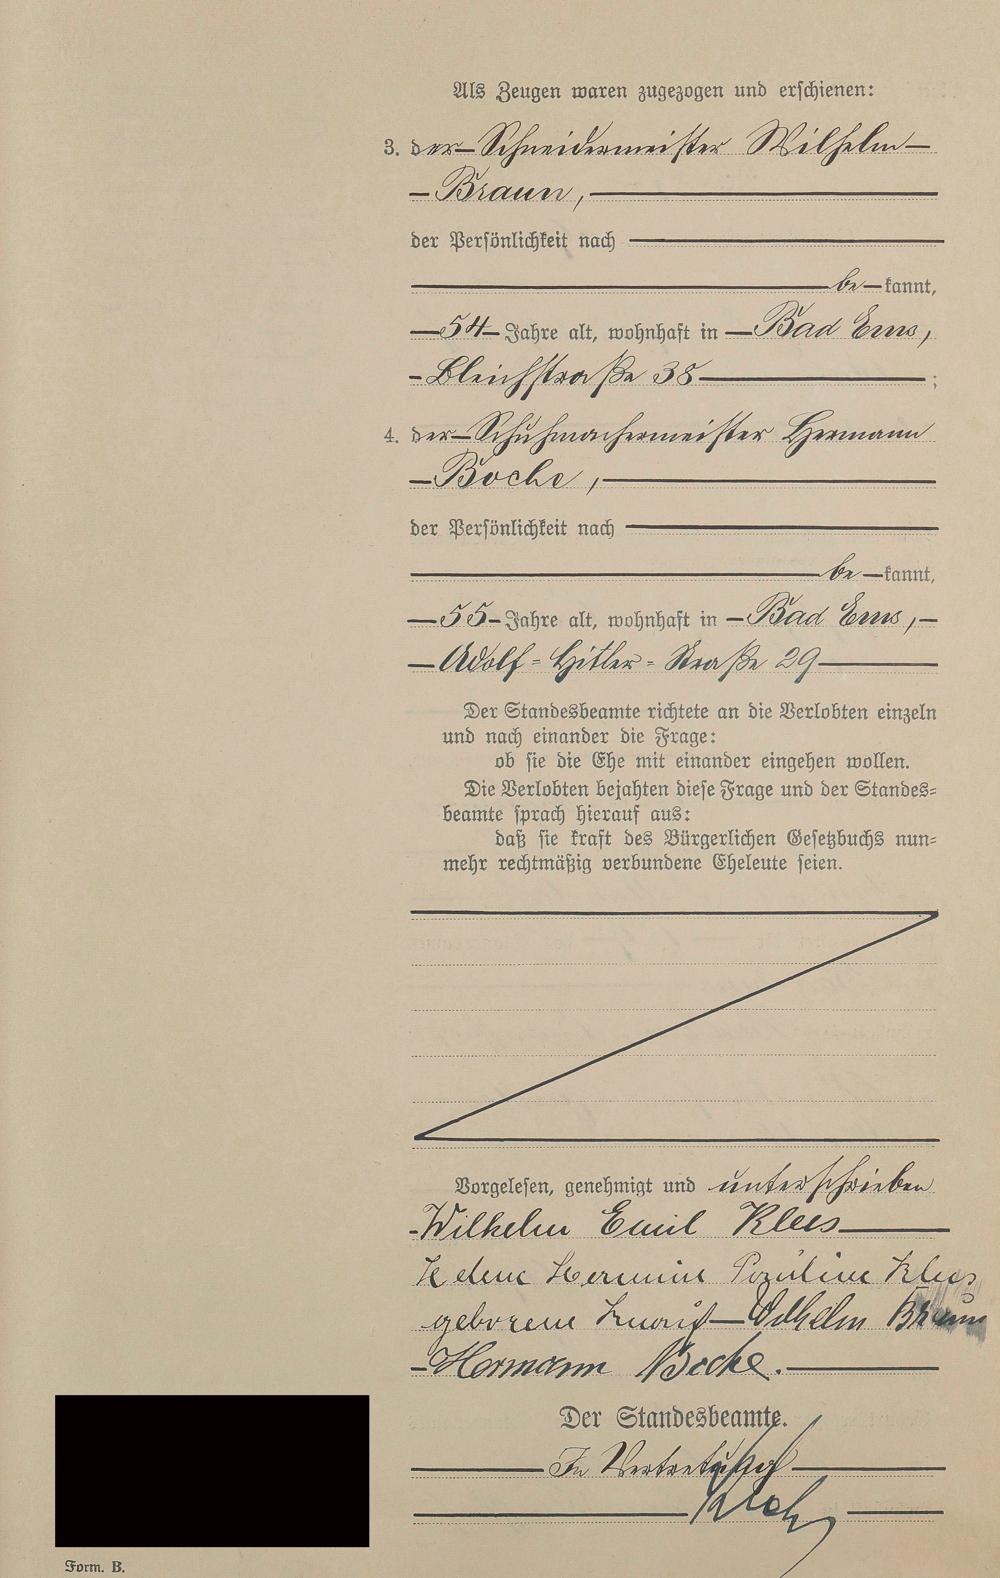 Als Zeugen waren zugezogen und erschienen:
3. der Schneidermeister Wilhelm
Braun,
der Persönlichkeit nach
be kannt,
54 Jahre alt, wohnhaft in Bad Ems,
Bleichstraße 38 ;
4. der Schuhmachermeister Hermann
Boche,
der Persönlichkeit nach
be kannt,
55 Jahre alt, wohnhaft in Bad Ems,
Adolf-Hitler-Straße 29
Der Standesbeamte richtete an die Verlobten einzeln
und nach einander die Frage:
ob sie die Ehe mit einander eingehen wollen.
Die Verlobten bejahten diese Frage und der Standes-
beamte sprach hierauf aus:
daß sie kraft des Bürgerlichen Gesetzbuchs nun-
mehr rechtmäßig verbundene Eheleute seien.
Vorgelesen, genehmigt und unterschrieben
Wilhelm Emil Klees
Hermine Pauline Klees
geborene Wilhelm Braun
Hermann Boche.
Der Standesbeamte.
In Vertretung